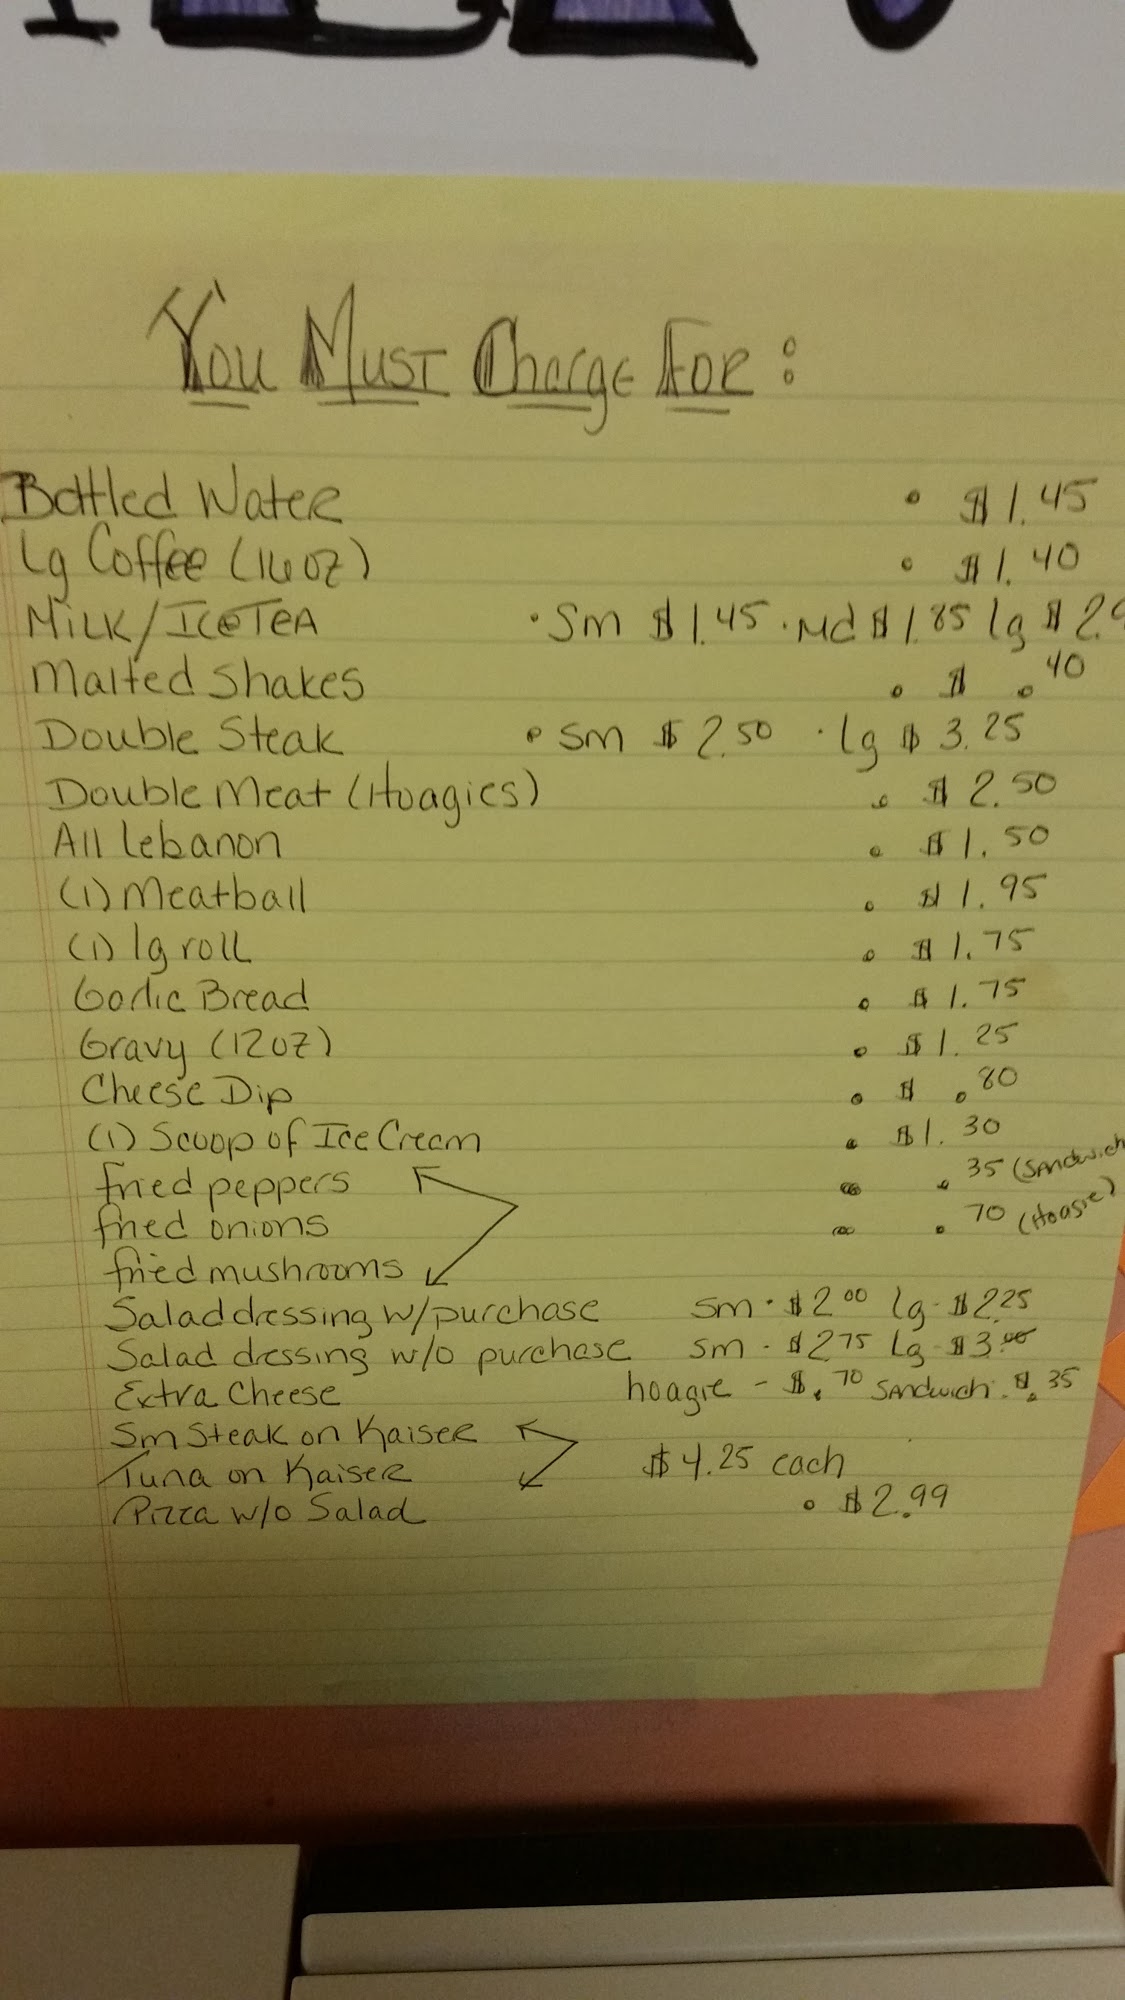 You Must Charge For:
Bottled Water • $1.45
Lg Coffee (16oz) • $1.40
Milk/Ice Tea • Sm $1.45 • Md $1.85 lg $2.
Malted Shakes • $ .40
Double Steak • Sm $2.50 • lg $3.25
Double Meat (Hoagies) • $2.50
All Lebanon • $1.50
(1) Meatball • $1.95
(1) lg roll • $1.75
Garlic Bread • $1.75
Gravy (12oz) • $1.25
Cheese Dip • $ .80
(1) Scoop of Ice Cream • $1.30
fried peppers • .35 (Sandwich
fried onions • .70 (Hoagie)
fried mushrooms
Salad dressing w/purchase sm • $2.00 lg - $2.25
Salad dressing w/o purchase sm - $2.75 Lg - $3.00
Extra Cheese hoagie - $.70 Sandwich - $.35
Sm Steak on Kaiser
Tuna on Kaiser $4.25 each
Pizza w/o Salad • $2.99